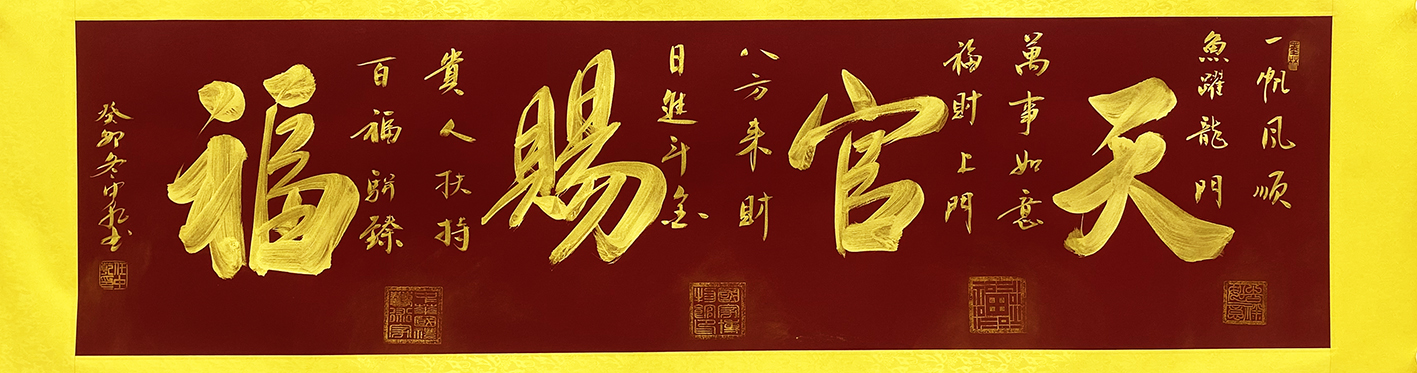 一帆风顺
魚躍龍門
天
萬事如意
福財上門
官
八方来財
日進斗金
賜
貴人扶持
百福駢臻
福
癸卯冬中书